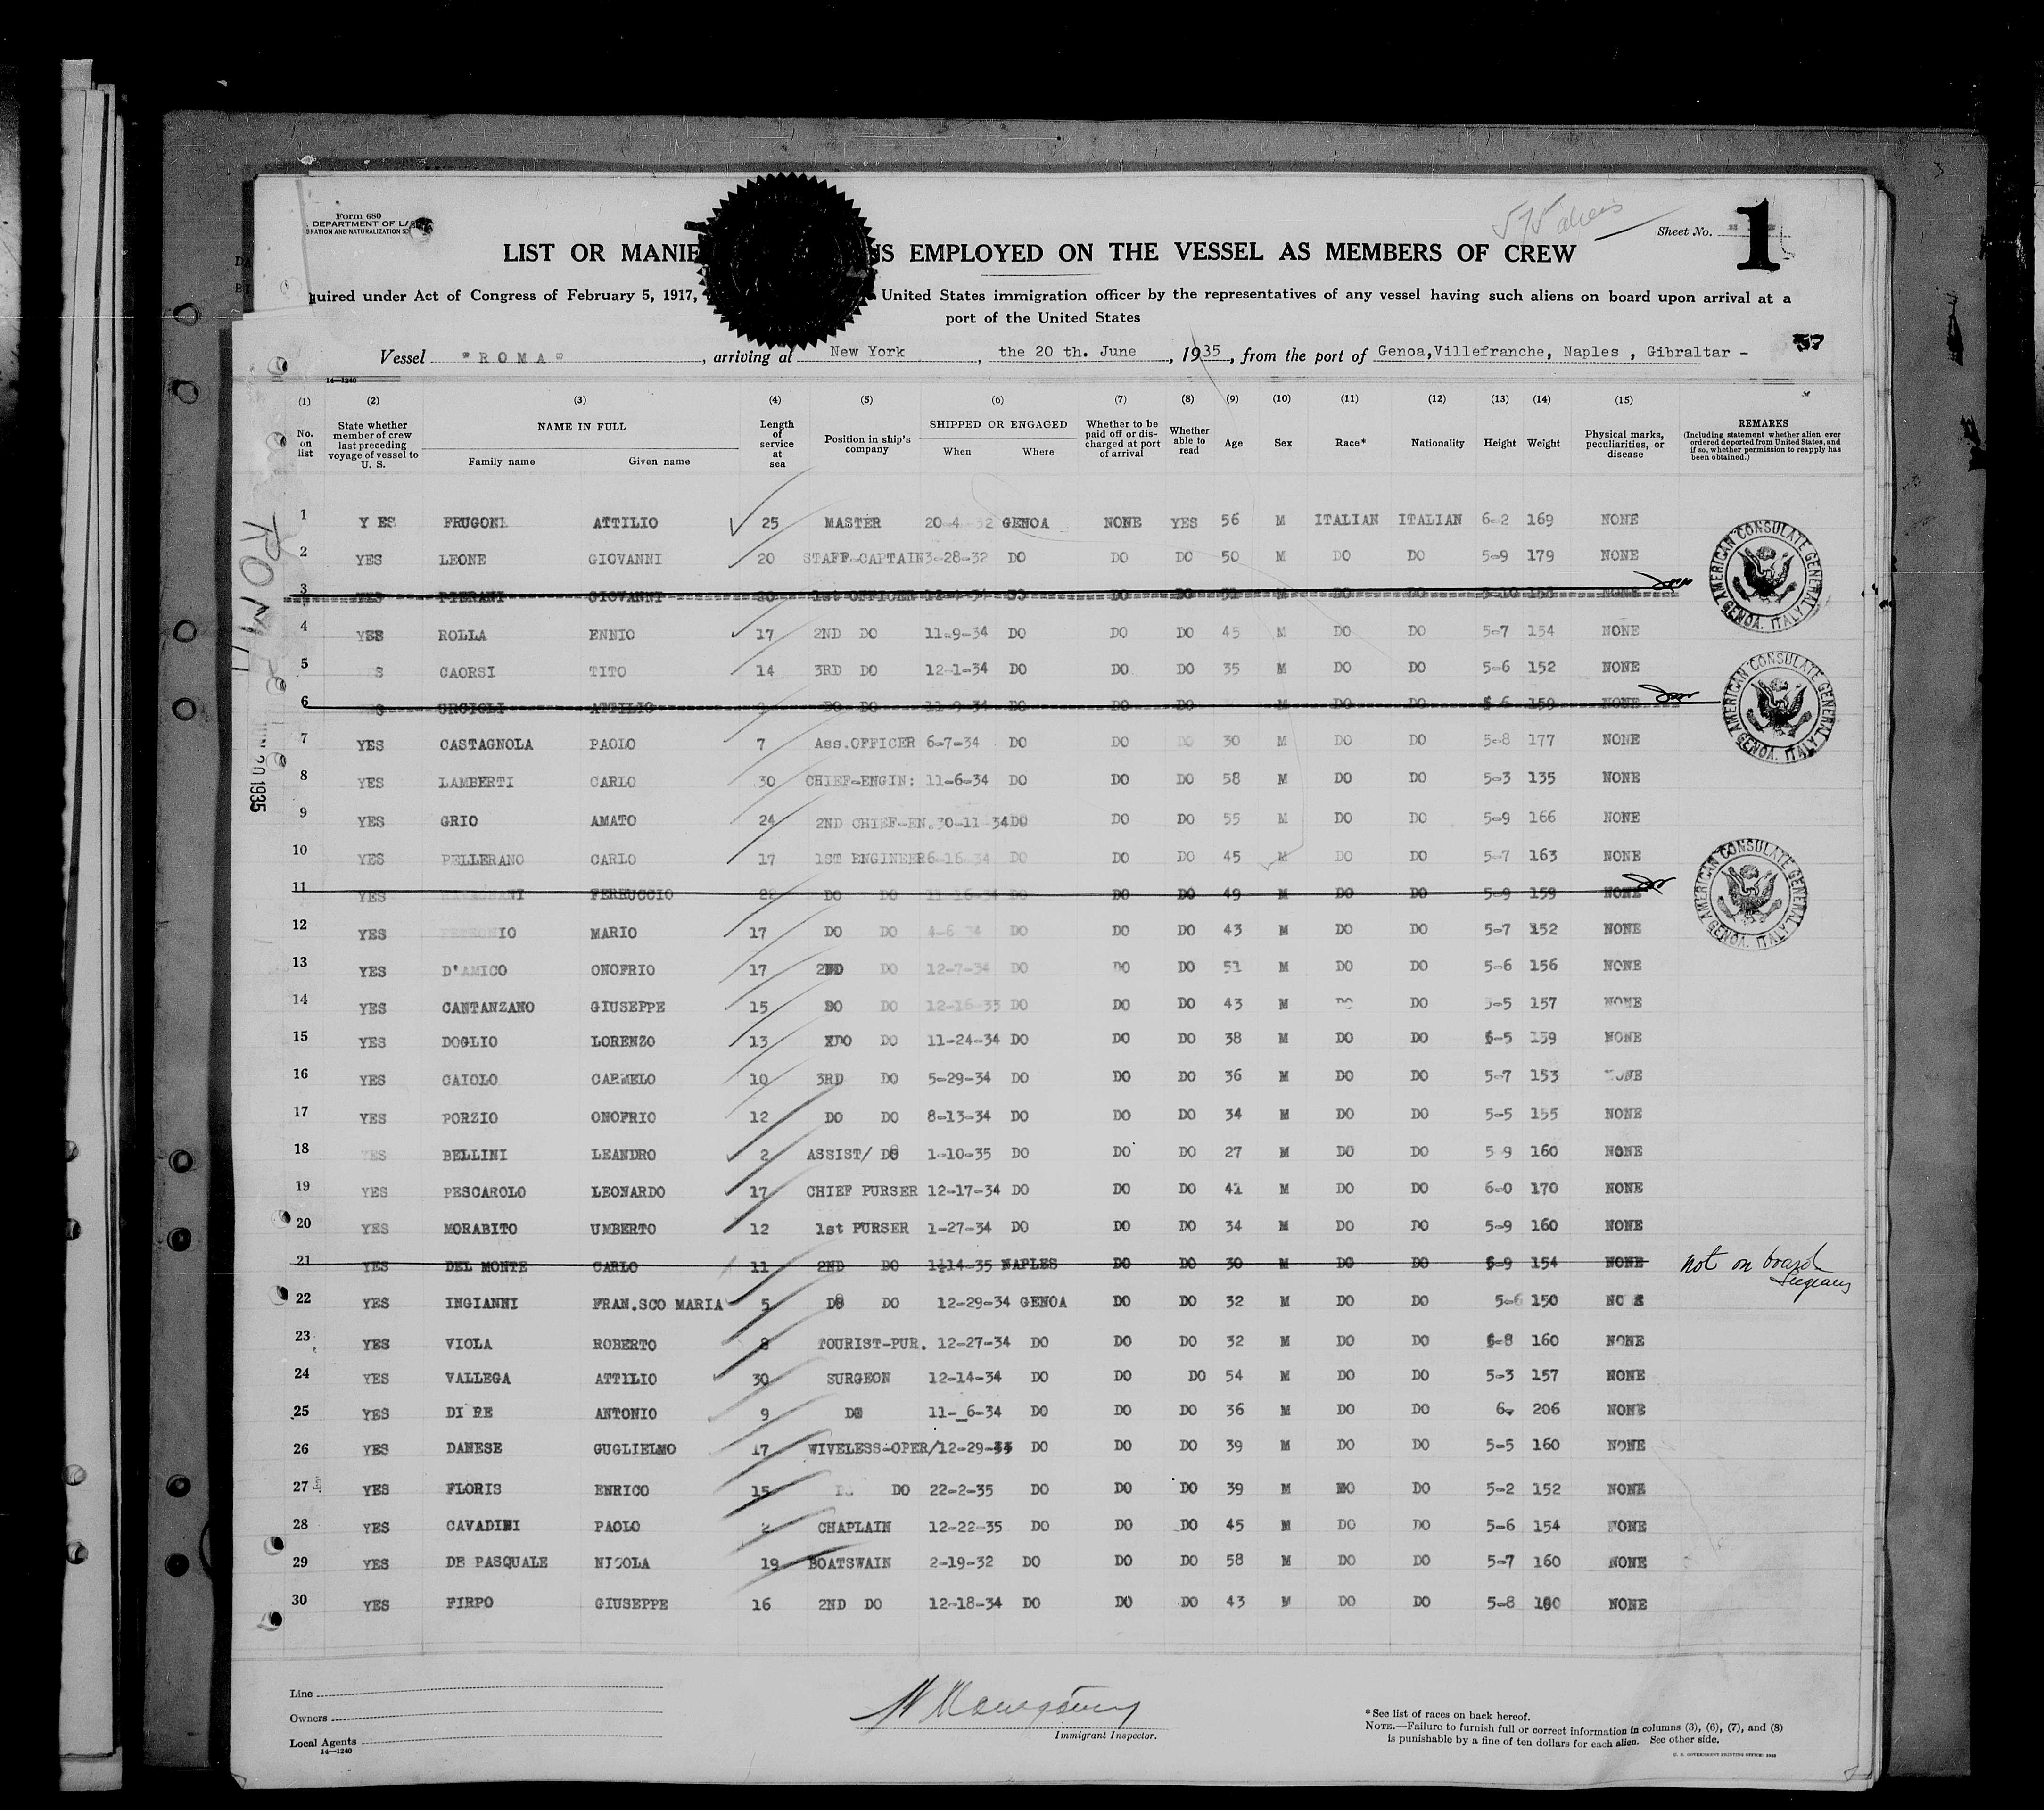 Form 680
DEPARTMENT OF LA
GRATION AND NATURALIZATION
575 aliens
Sheet No. 1
LIST OR MANIF NS EMPLOYED ON THE VESSEL AS MEMBERS OF CREW
quired under Act of Congress of February 5, 1917, United States immigration officer by the representatives of any vessel having such aliens on board upon arrival at a
port of the United States
37
Vessel "ROMA", arriving at New York, the 20 th. June, 1935, from the port of Genoa, Villefranche, Naples , Gibraltar -
14—1240
(1) (2) (3) (4) (5) (6) (7) (8) (9) (10) (11) (12) (13) (14) (15)
No. on list State whether member of crew last preceding voyage of vessel to U. S. NAME IN FULL Family name Given name Length of service at sea Position in ship's company SHIPPED OR ENGAGED When Where Whether to be paid off or discharged at port of arrival Whether able to read Age Sex Race* Nationality Height Weight Physical marks, peculiarities, or disease REMARKS (Including statement whether alien ever ordered deported from United States, and if so, whether permission to reapply has been obtained.)
1 Y ES FRUGONI ATTILIO 25 MASTER 20-4-32 GENOA NONE YES 56 M ITALIAN ITALIAN 6-2 169 NONE
2 YES LEONE GIOVANNI 20 STAFF-CAPTAIN 3-28-32 DO DO DO 50 M DO DO 5-9 179 NONE
3 YES PIERANI GIOVANNI 20 1st OFFICER DO DO DO M DO DO 5-10 158 NONE
4 YES ROLLA ENNIO 17 2ND DO 11-9-34 DO DO DO 45 M DO DO 5-7 154 NONE
5 S CAORSI TITO 14 3RD DO 12-1-34 DO DO DO 35 M DO DO 5-6 152 NONE
6 URCIOLI ATTILIO DO DO 11-9-34 DO DO DO M DO DO 5-6 159 NONE
7 YES CASTAGNOLA PAOLO 7 Ass.OFFICER 6-7-34 DO DO DO 30 M DO DO 5-8 177 NONE
8 YES LAMBERTI CARLO 30 CHIEF-ENGIN: 11-6-34 DO DO DO 58 M DO DO 5-3 135 NONE
9 YES GRIO AMATO 24 2ND CHIEF-EN. 30-11-34 DO DO DO 55 M DO DO 5-9 166 NONE
10 YES PELLERANO CARLO 17 1ST ENGINEER 6-16-34 DO DO DO 45 M DO DO 5-7 163 NONE
11 YES FERRUCCIO 22 DO DO 11-16-34 DO DO DO 49 M DO DO 5-9 159 NONE
12 YES PETRONIO MARIO 17 DO DO 4-6-34 DO DO DO 43 M DO DO 5-7 152 NONE
13 YES D'AMICO ONOFRIO 17 2ND DO 12-7-34 DO DO DO 51 M DO DO 5-6 156 NONE
14 YES CANTANZANO GIUSEPPE 15 DO DO 12-16-33 DO DO DO 43 M DO DO 5-5 157 NONE
15 YES DOGLIO LORENZO 13 XDO DO 11-24-34 DO DO DO 38 M DO DO 5-5 159 NONE
16 YES CAIOLO CARMELO 10 3RD DO 5-29-34 DO DO DO 36 M DO DO 5-7 153 NONE
17 YES PORZIO ONOFRIO 12 DO DO 8-13-34 DO DO DO 34 M DO DO 5-5 155 NONE
18 YES BELLINI LEANDRO 2 ASSIST/ DO 1-10-35 DO DO DO 27 M DO DO 5 9 160 NONE
19 YES PESCAROLO LEONARDO 17 CHIEF PURSER 12-17-34 DO DO DO 41 M DO DO 6-0 170 NONE
20 YES MORABITO UMBERTO 12 1st PURSER 1-27-34 DO DO DO 34 M DO DO 5-9 160 NONE
21 YES DEL MONTE CARLO 11 2ND DO 1-14-35 NAPLES DO DO 30 M DO DO 5-9 154 NONE not on board
22 YES INGIANNI FRAN.SCO MARIA 5 DO DO 12-29-34 GENOA DO DO 32 M DO DO 5-6 150 NO E
23 YES VIOLA ROBERTO 8 TOURIST-PUR. 12-27-34 DO DO DO 32 M DO DO 5-8 160 NONE
24 YES VALLEGA ATTILIO 30 SURGEON 12-14-34 DO DO DO 54 M DO DO 5-3 157 NONE
25 YES DI RE ANTONIO 9 DO 11-_6-34 DO DO DO 36 M DO DO 6- 206 NONE
26 YES DANESE GUGLIELMO 17 WIVELESS-OPER/ 12-29-33 DO DO DO 39 M DO DO 5-5 160 NONE
27 YES FLORIS ENRICO 15 DO DO 22-2-35 DO DO DO 39 M DO DO 5-2 152 NONE
28 YES CAVADINI PAOLO 2 CHAPLAIN 12-22-35 DO DO DO 45 M DO DO 5-6 154 NONE
29 YES DE PASQUALE NICOLA 19 BOATSWAIN 2-19-32 DO DO DO 58 M DO DO 5-7 160 NONE
30 YES FIRPO GIUSEPPE 16 2ND DO 12-18-34 DO DO DO 43 M DO DO 5-8 160 NONE
AMERICAN CONSULATE GENERAL GENOA, ITALY
AMERICAN CONSULATE GENERAL GENOA, ITALY
AMERICAN CONSULATE GENERAL GENOA, ITALY
ROMA
JUN 20 1935
Line
Owners
Local Agents
14—1240
Immigrant Inspector.
*See list of races on back hereof.
NOTE.—Failure to furnish full or correct information in columns (3), (6), (7), and (8)
is punishable by a fine of ten dollars for each alien. See other side.
U. S. GOVERNMENT PRINTING OFFICE